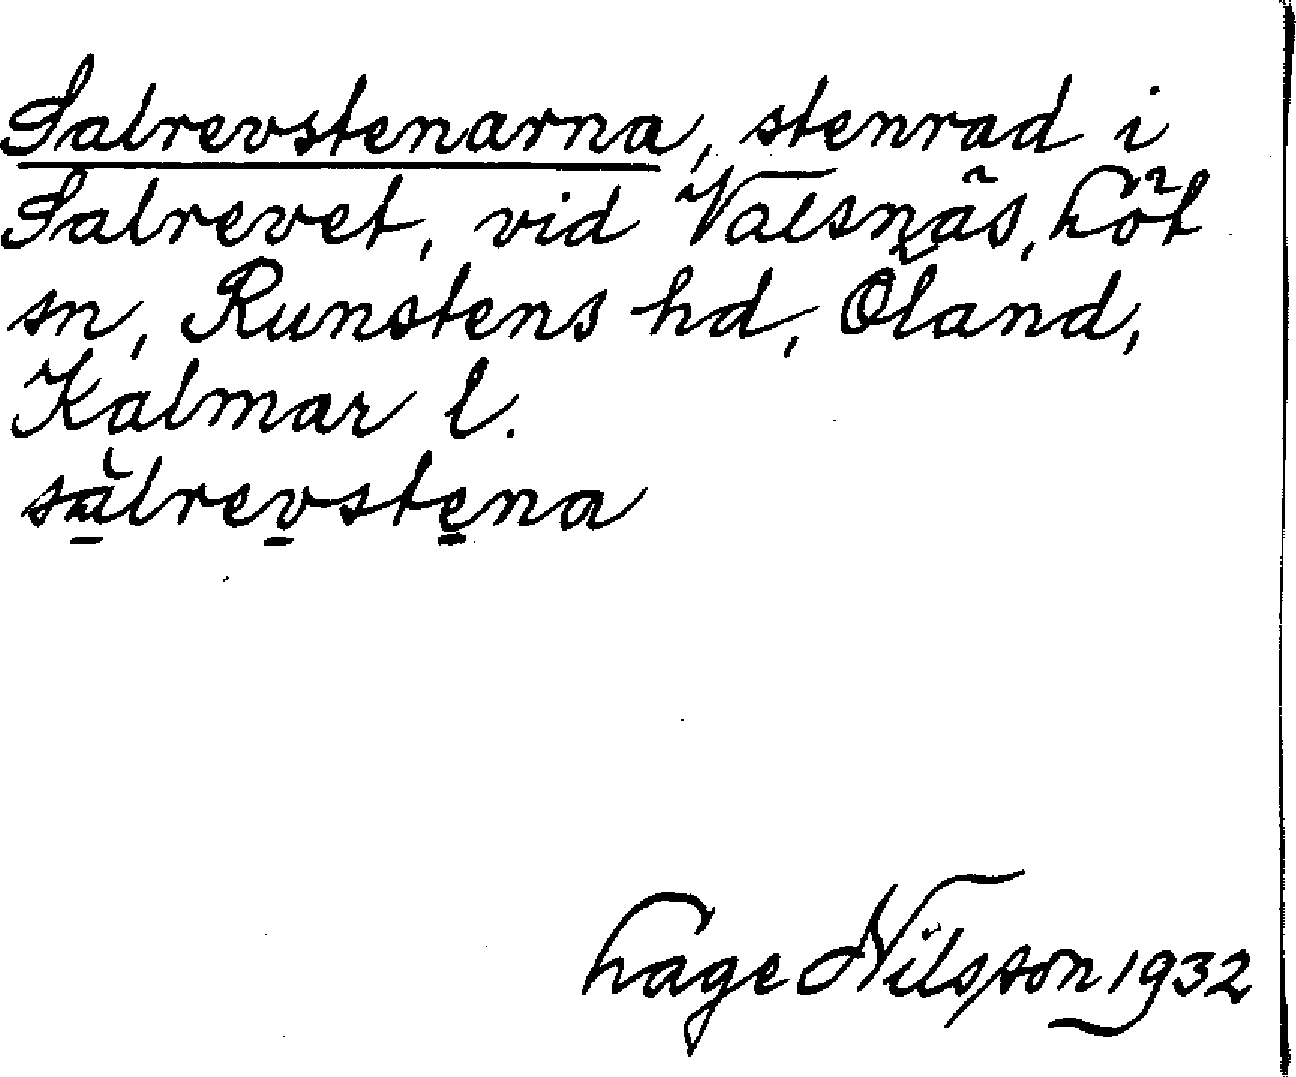 Salrevstenarna, stenrad i
Salrevet, vid Valsnäs, Löt
sn, Runstens hd, Öland,
Kalmar l.
sàlrevstena
Hage Nilsson 1932